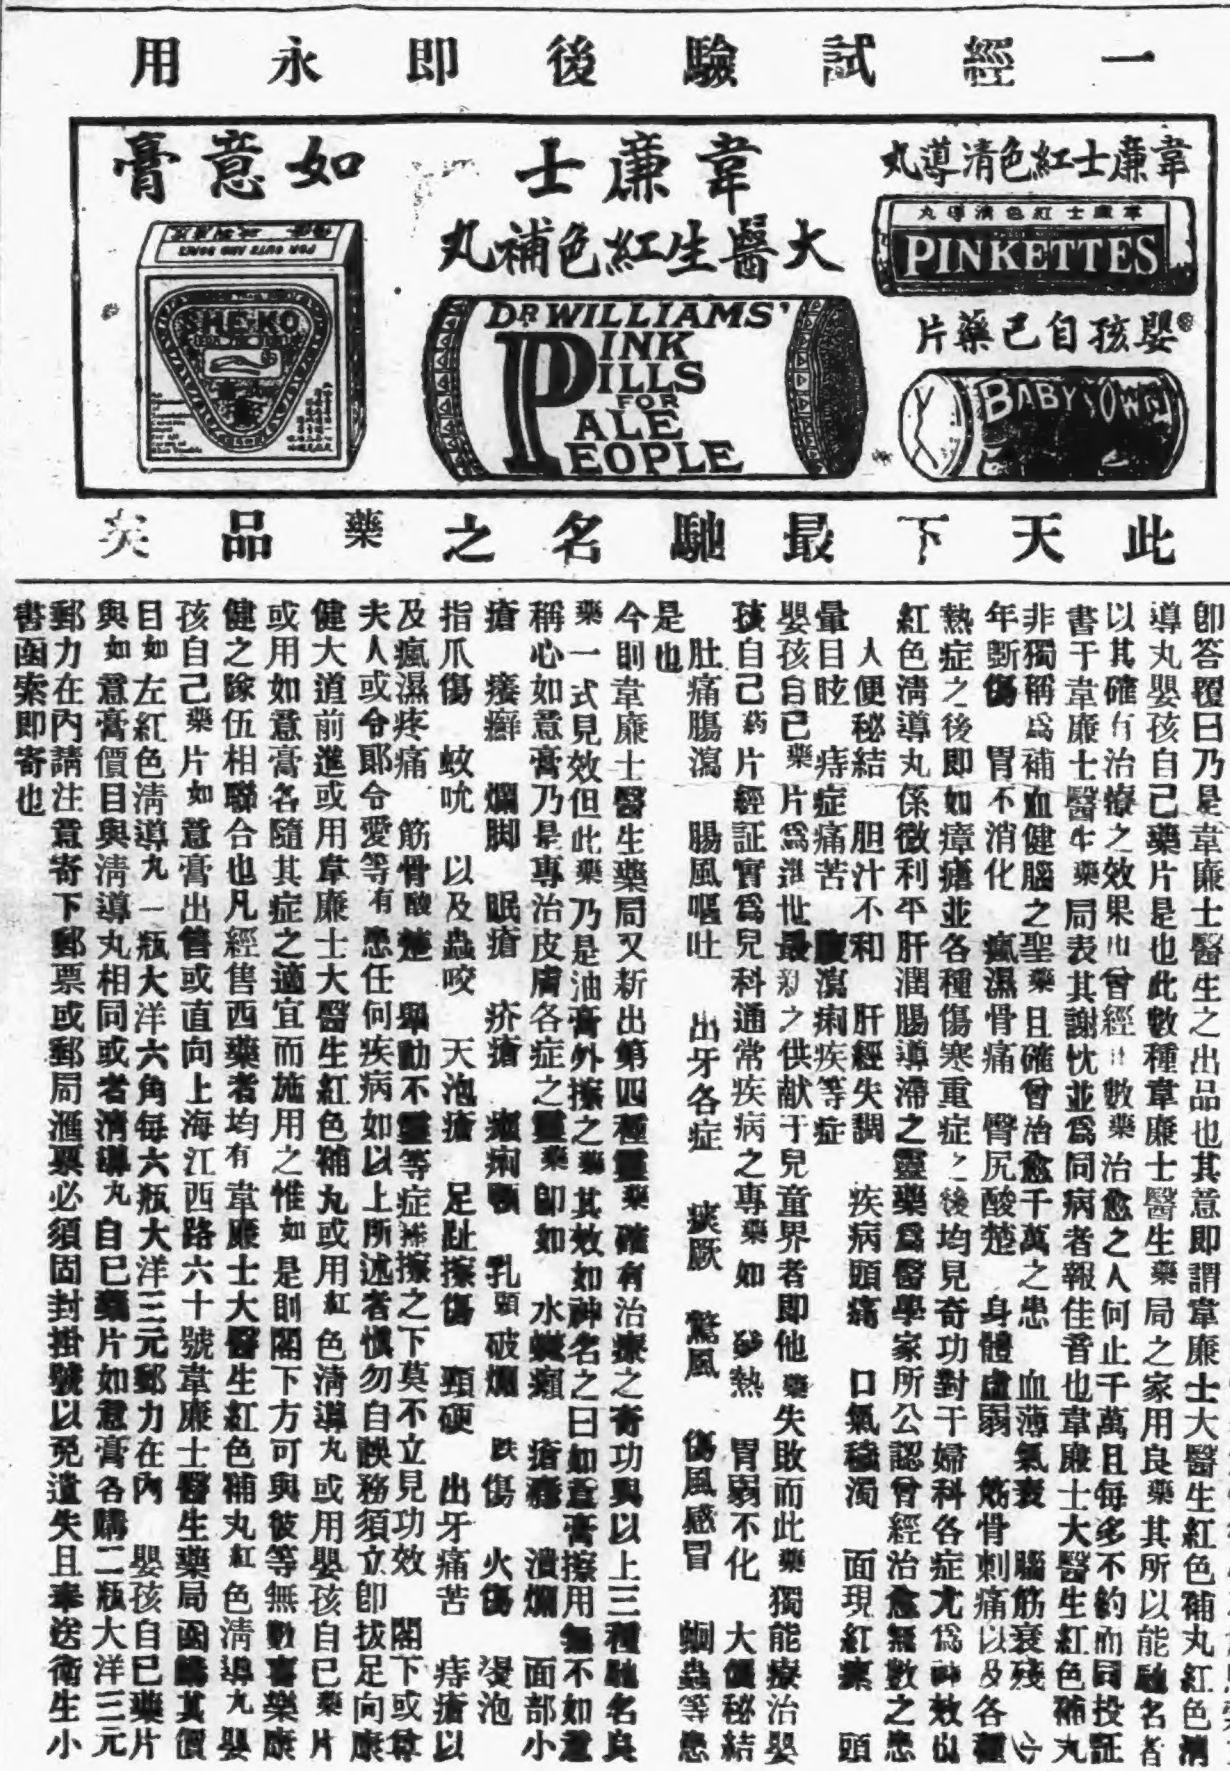 一經試驗後即永用
韋廉士紅色清導丸
韋廉士紅色清導丸
PINKETTES
嬰孩自己藥片
BABY'S OWN
韋廉士
大醫生紅色補丸
DR WILLIAMS'
PINK
PILLS
FOR
PALE
PEOPLE
如意膏
FOR CUTS AND SORES
SHE-KO
此天下最馳名之藥品矣
即答覆曰乃是韋廉士醫生之出品也其意即謂韋廉士大醫生紅色補丸紅色清
導丸嬰孩自己藥片是也此數種韋廉士醫生藥局之家用良藥其所以能馳名者
以其確有治療之效果也曾經此數藥治愈之人何止千萬且每多不約而同投証
書于韋廉士醫生藥局表其謝忱並爲同病者報佳音也韋廉士大醫生紅色補丸
非獨稱爲補血健腦之聖藥且確曾治愈千萬之患 血薄氣衰 腦筋衰殘 少
年斲傷 胃不消化 瘋濕骨痛 臀尻酸楚 身體虛弱 筋骨刺痛以及各種
熱症之後即如瘴瘧並各種傷寒重症之後均見奇功對于婦科各症尤爲神效也
紅色清導丸係微利平肝潤腸導滯之靈藥爲醫學家所公認曾經治愈無數之患
人便秘結 胆汁不和 肝經失調 疾病頭痛 口氣穢濁 面現紅瘰 頭
暈目眩 痔症痛苦 腹瀉痢疾等症
嬰孩自己藥片爲進世最新之供献于兒童界者即他藥失敗而此藥獨能療治嬰
孩自己药片經証實爲兒科通常疾病之專藥如 發熱 胃弱不化 大便秘結
肚痛腸瀉 腸風嘔吐 出牙各症 痰厥 驚風 傷風感冒 蛔蟲等患
是也
今則韋廉士醫生藥局又新出第四種靈藥確有治療之奇功與以上三種馳名良
藥一式見效但此藥乃是油膏外擦之藥其效如神名之曰如意膏擦用無不如意
稱心如意膏乃是專治皮膚各症之靈藥即如 水蟻癩 瘡癰 潰爛 面部小
瘡 瘘癬 爛脚 眠瘡 疥瘡 瘰痢 乳頭破爛 跌傷 火傷 湯泡
指爪傷 蚊吮 以及蟲咬 天泡瘡 足趾擦傷 頸硬 出牙痛苦 痔瘡以
及瘋濕疼痛 筋骨酸楚 舉動不靈等症搽擦之下莫不立見功效 閣下或尊
夫人或令郎令愛等有患任何疾病如以上所述者慎勿自誤務須立卽拔足向康
健大道前進或用韋廉士大醫生紅色補丸或用紅色清導丸或用嬰孩自已藥片
或用如意膏各隨其症之適宜而施用之惟如是則閣下方可與彼等無數喜樂康
健之隊伍相聯合也凡經售西藥者均有韋廉士大醫生紅色補丸紅色清導丸嬰
孩自己藥片如意膏出售或直向上海江西路六十號韋廉士醫生藥局函購其價
目如左紅色清導丸一瓶大洋六角每六瓶大洋三元郵力在內 嬰孩自已藥片
與如意膏價目與清導丸相同或者清導丸自已藥片如意膏各購二瓶大洋三元
郵力在內請注意寄下郵票或郵局滙票必須固封掛號以免遺失且奉送衛生小
書函索即寄也